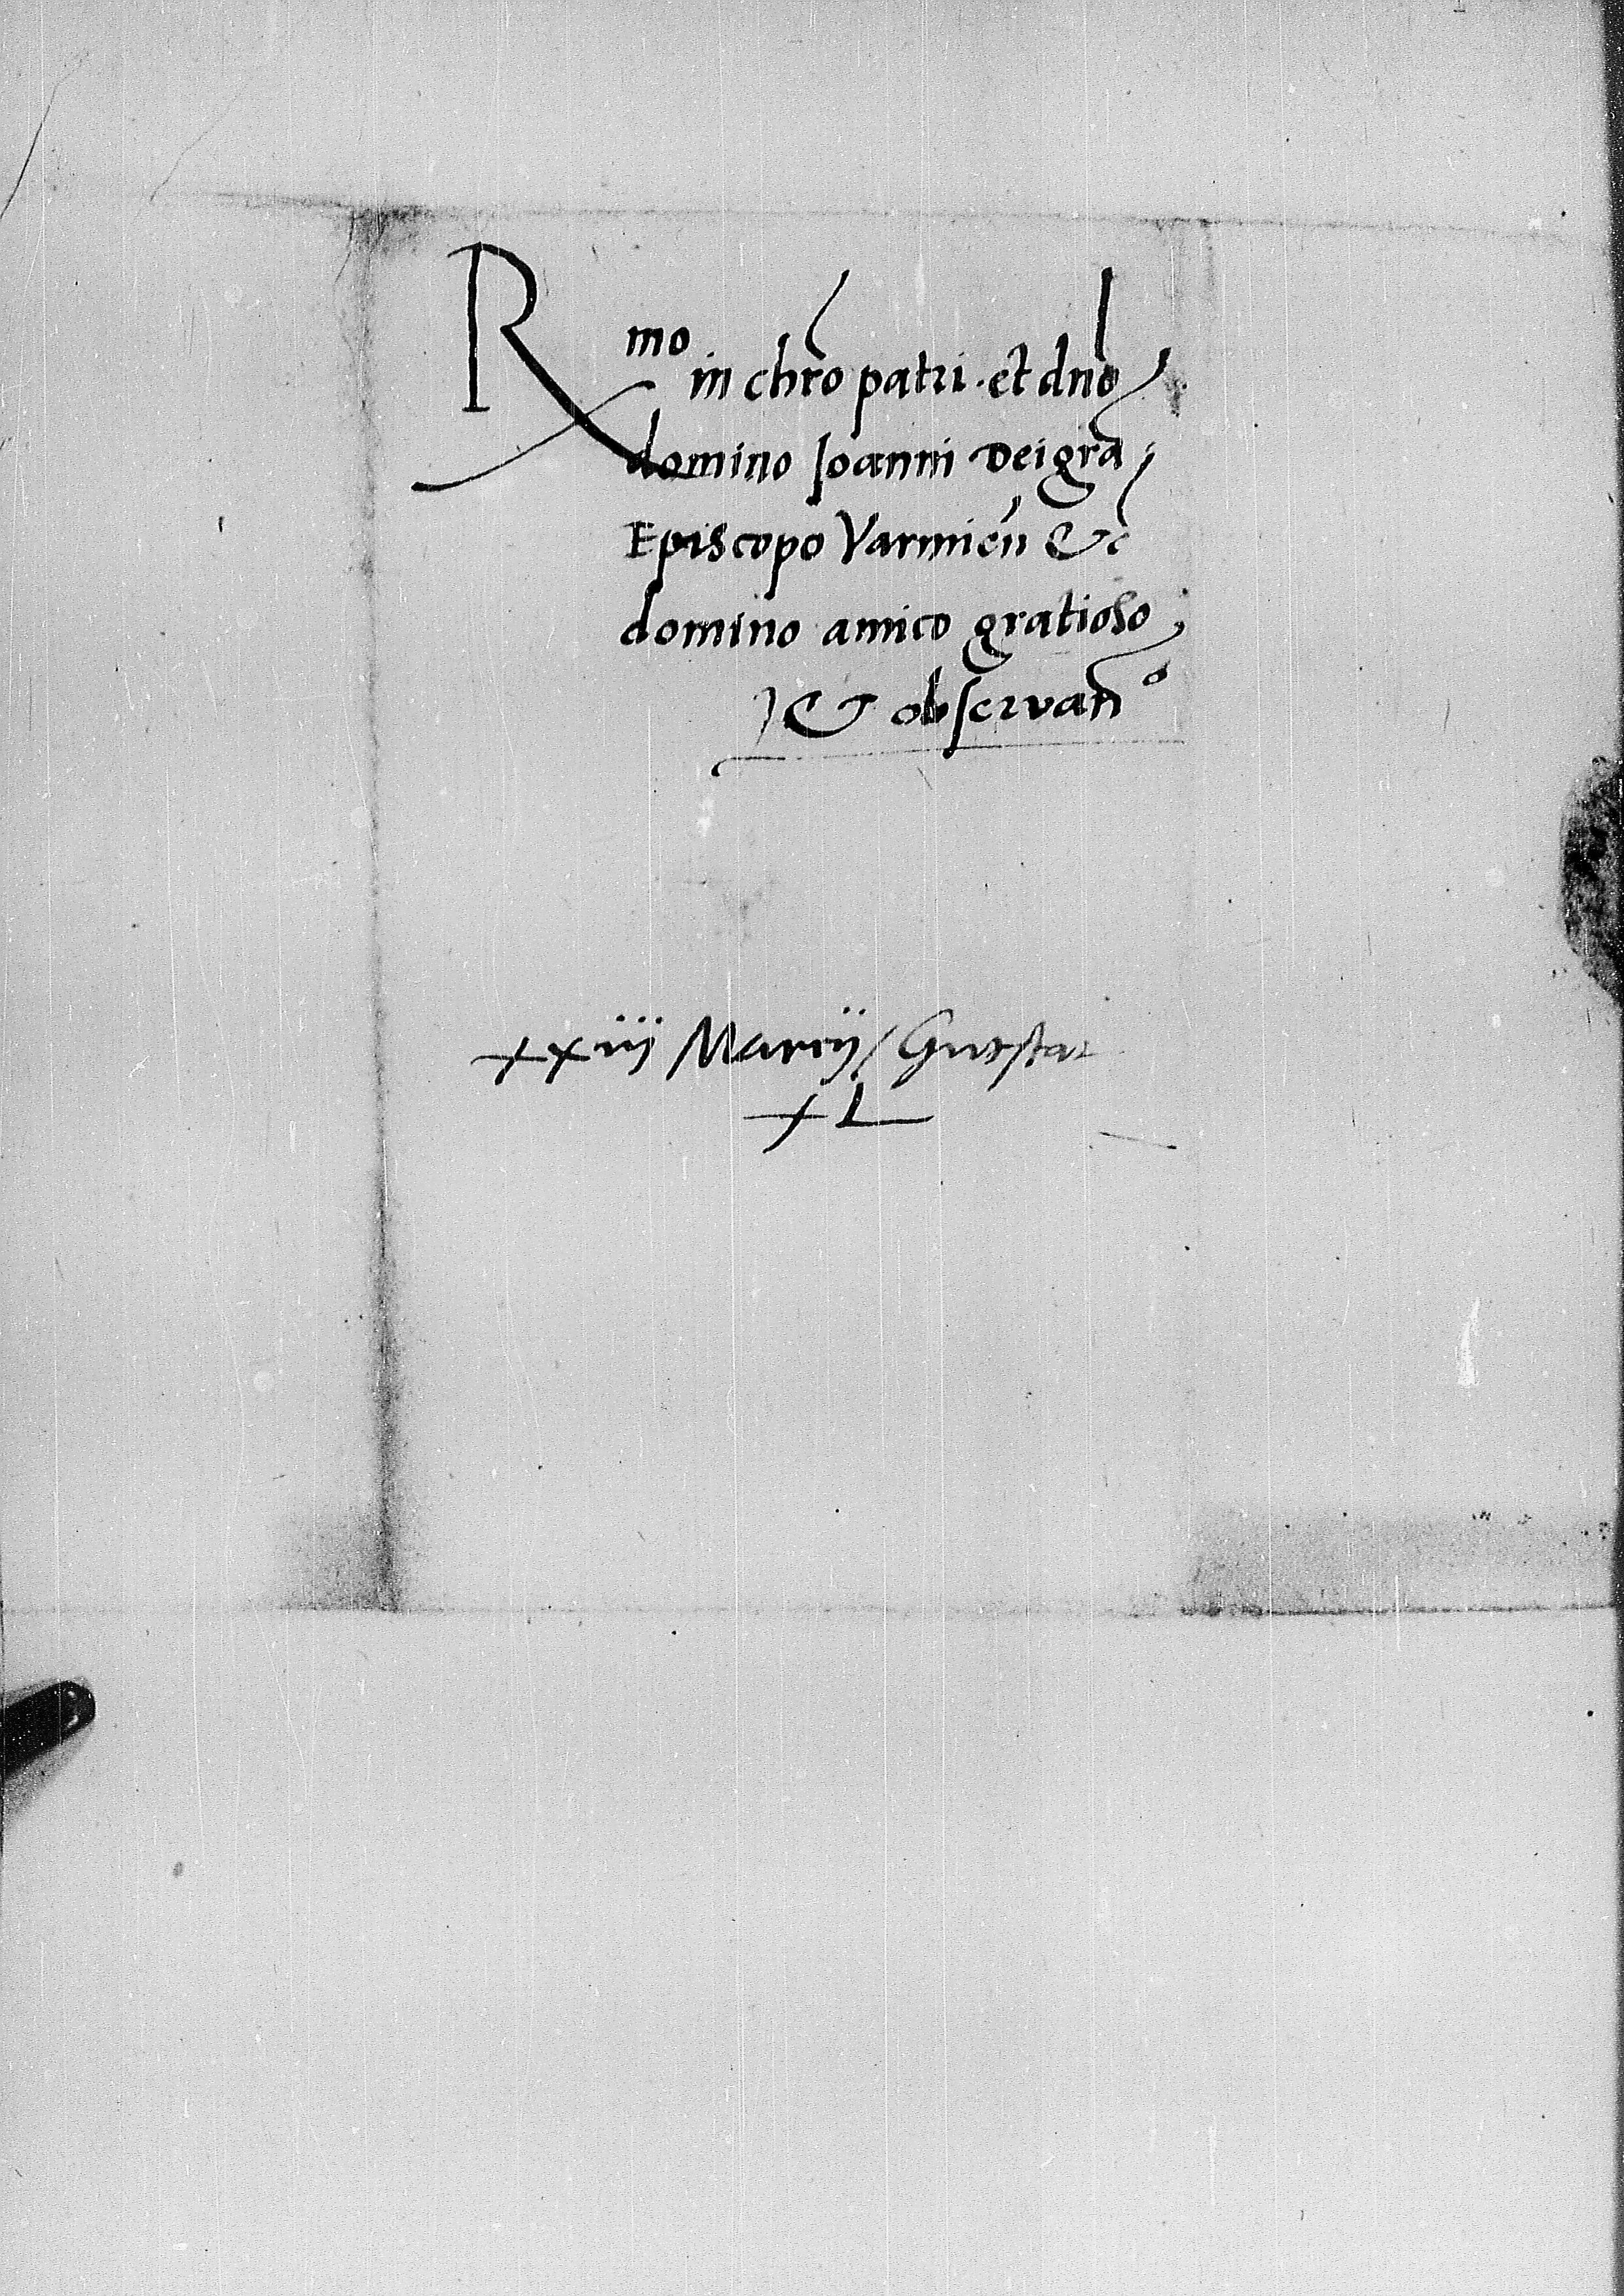 Rmo in chro patri et dno
domino Ioanni Dei gra
Episcopo Varmien &c
domino amico gratioso
& observanº
xxiij Marcij /
XL